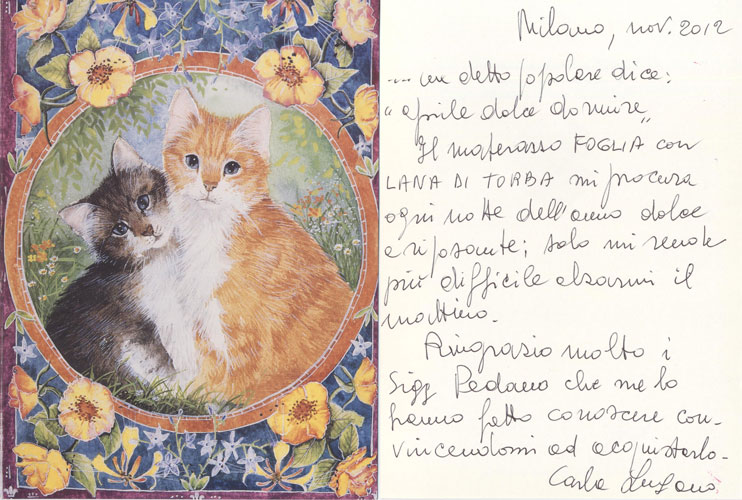 Milano, nov. 2012
.... un detto popolare dice:
"aprile dolce dormire„
Il materasso FOGLIA con
LANA DI TORBA mi procura
ogni notte dell'anno dolce
e riposante; solo mi rende
più difficile alzarmi il
mattino.
Ringrazio molto i
Sigg Pedano che me lo
hanno fatto conoscere con-
vincendomi ad acquistarlo.
Carla